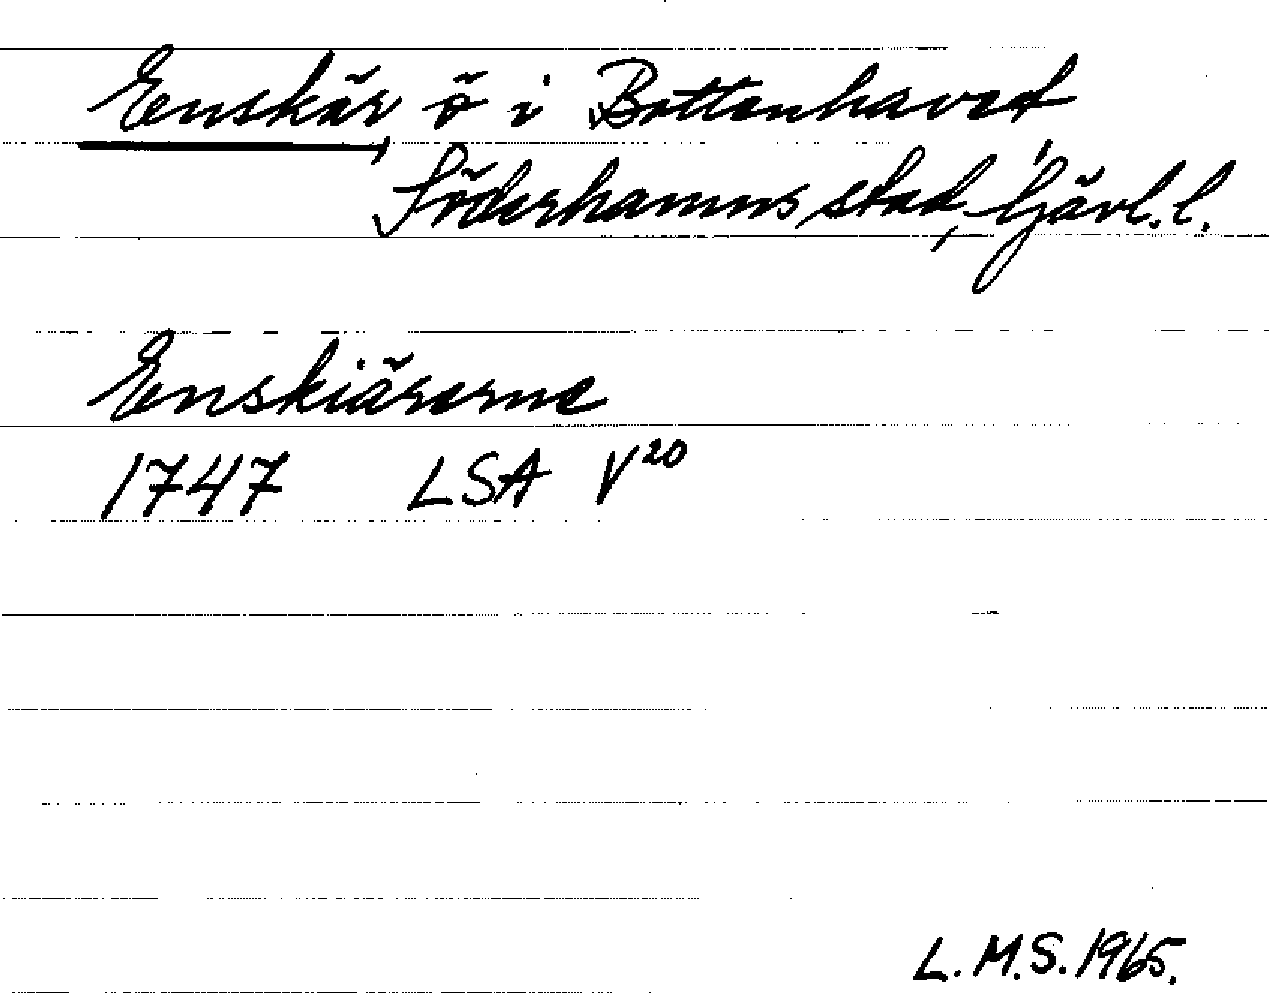 Enskär, ö i Bottenhavet
Söderhamns stad, Gävl.l.
Enskiärerne
1747 LSA V20
L.M.S. 1965.